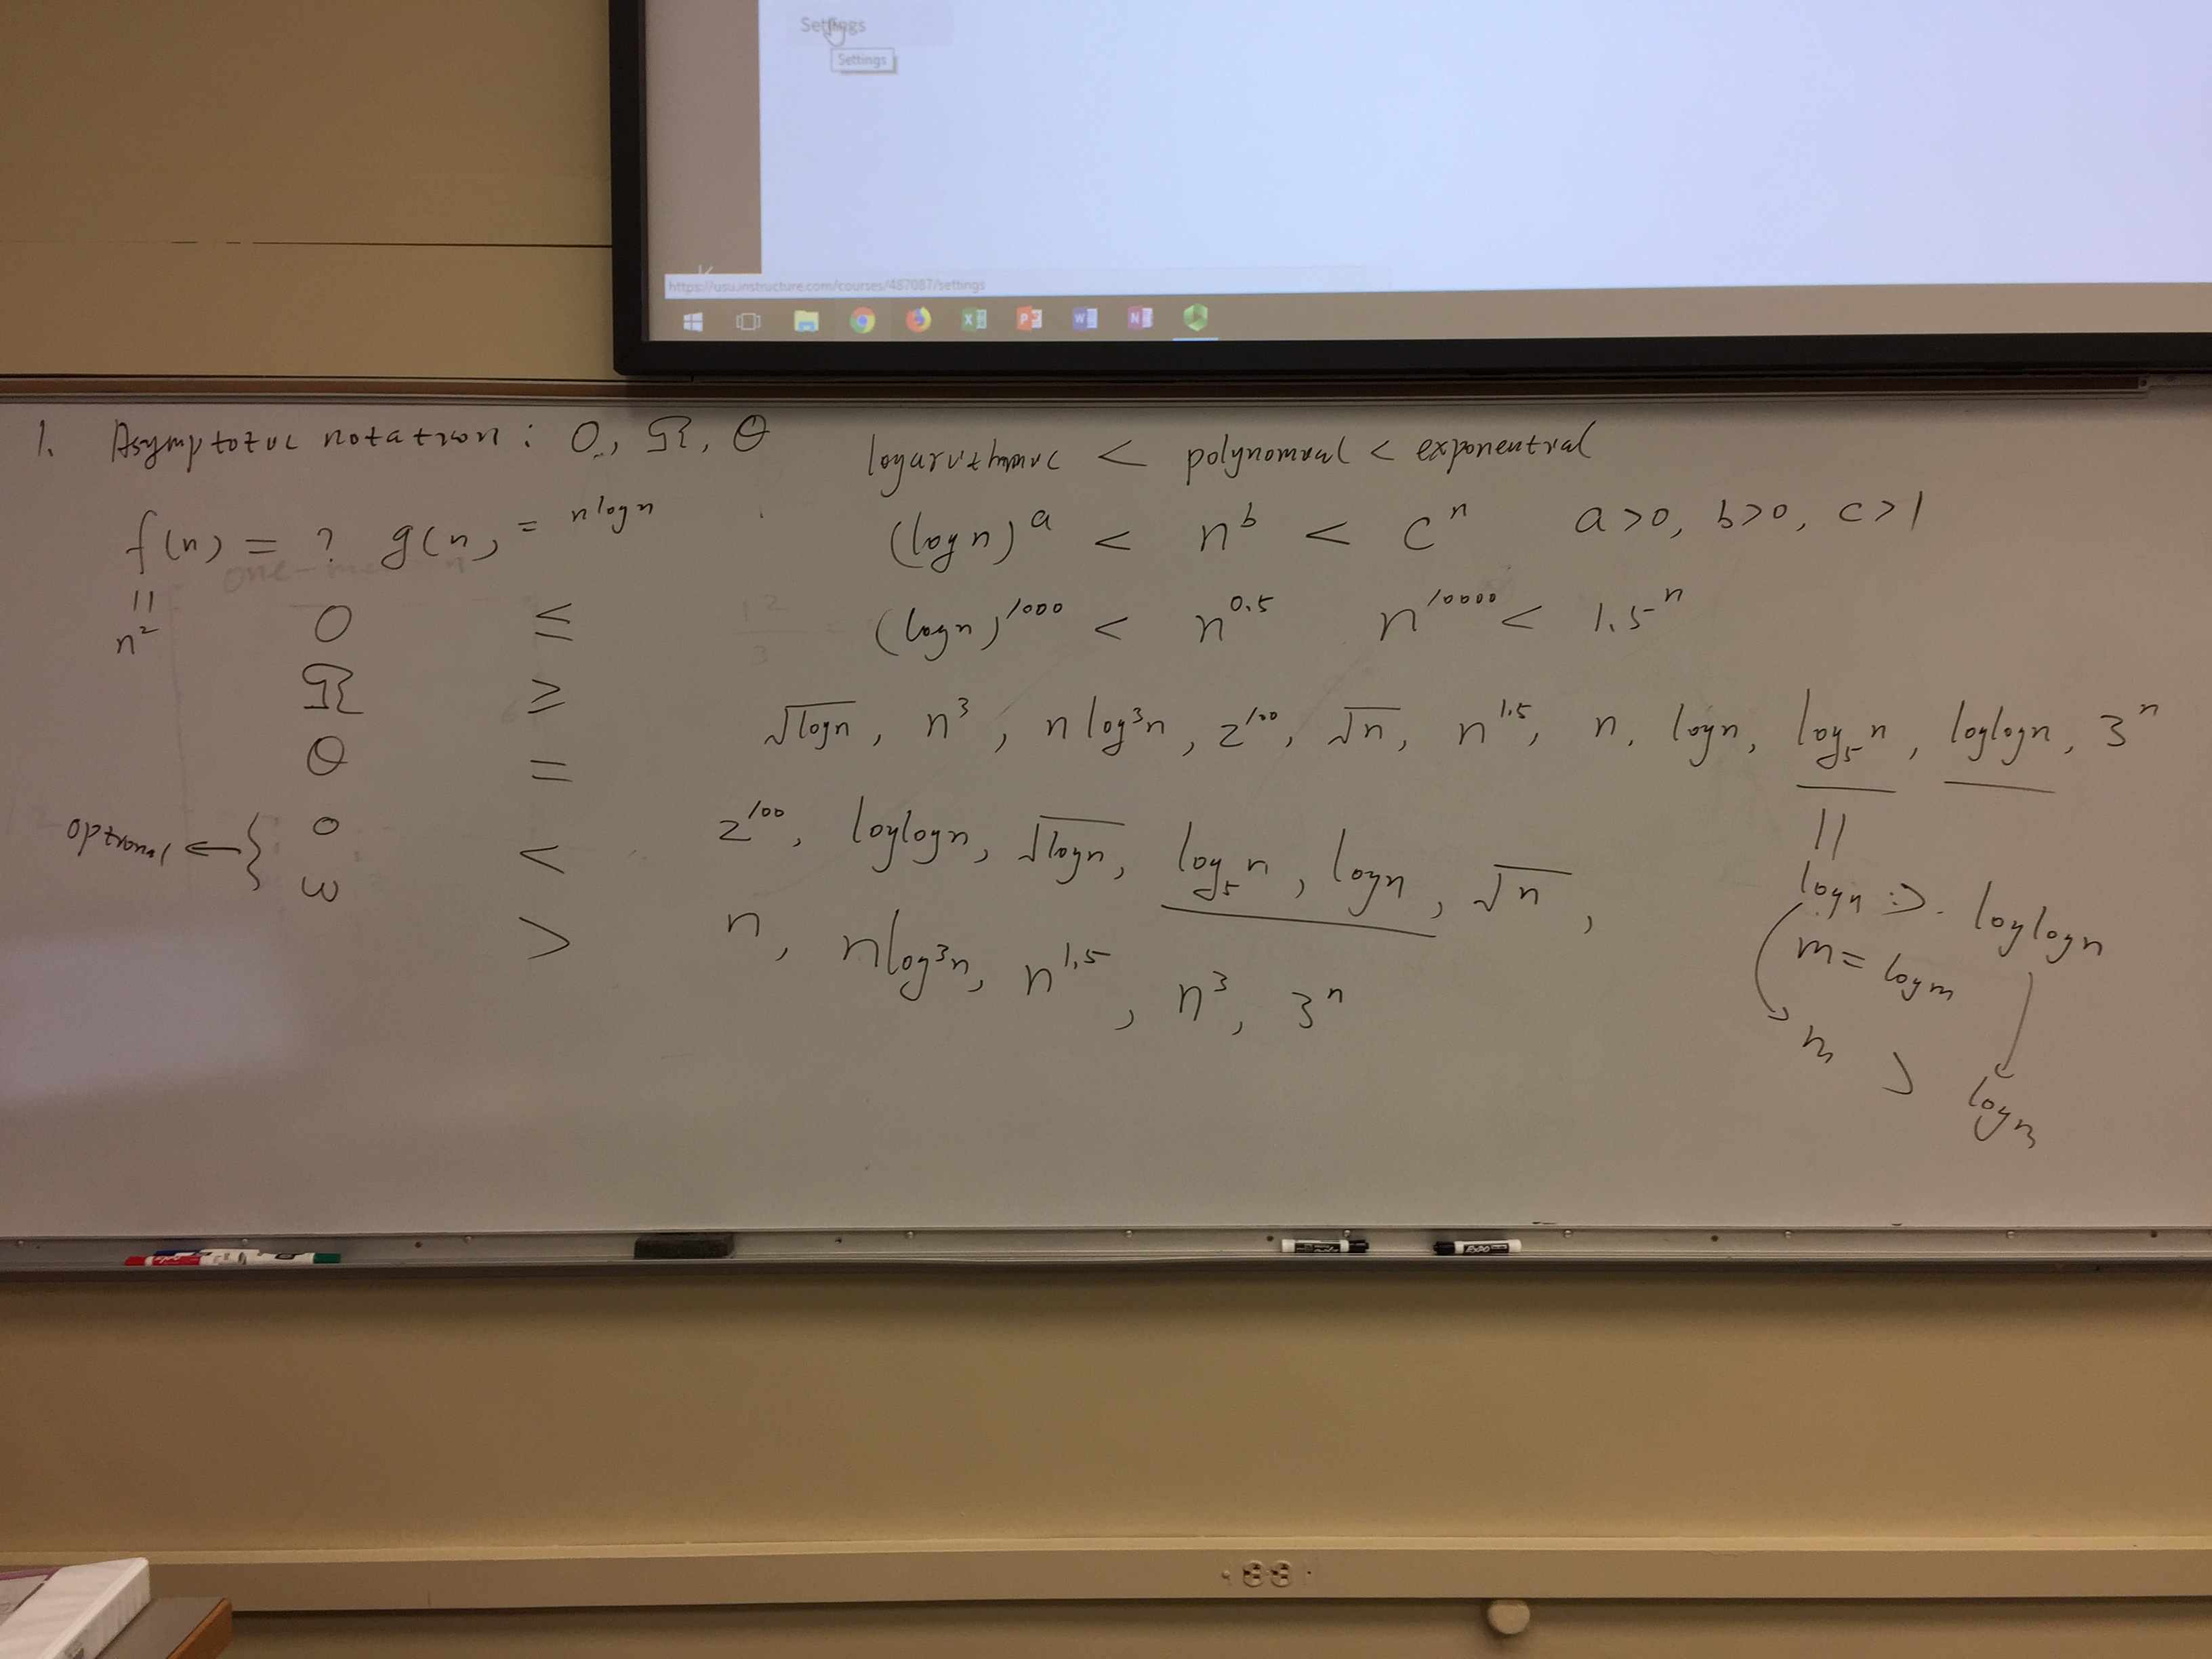 Settings
Settings
https://usu.instructure.com/courses/487087/settings
1. Asymptotic notation : O, Ω, Θ
f(n) = ? g(n) = nlogn
||
n²
O ≤
Ω ≥
Θ =
o <
ω >
optional ←
logarithmic < polynomial < exponential
(log n)^a < n^b < c^n a>0, b>0, c>1
(logn)^1000 < n^0.5 n^10000 < 1.5^n
√logn, n³, n log³n, 2^100, √n, n^1.5, n, logn, log₅n, loglogn, 3^n
2^100, loglogn, √logn, log₅n, logn, √n,
n, nlog³n, n^1.5, n³, 3^n
||
logn :>. loglogn
m = logm
m > logm